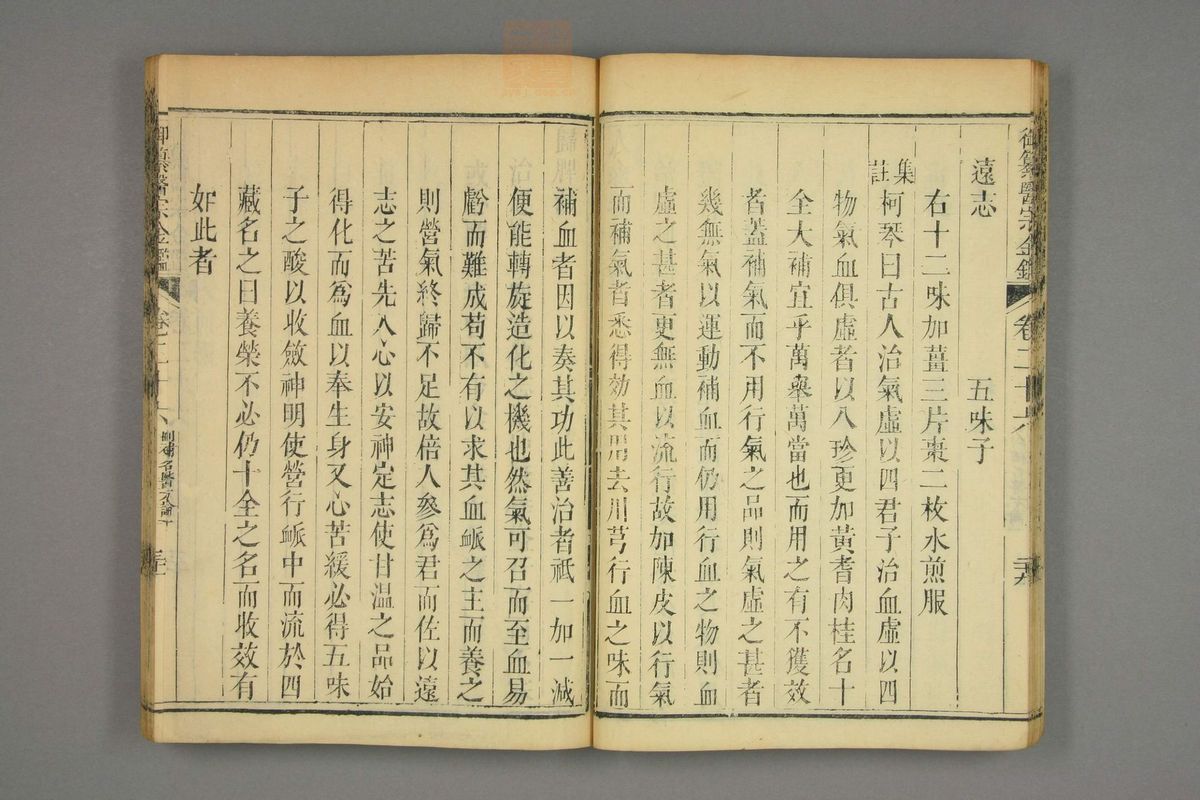 御纂醫宗金鑑 卷二十六
遠志 五味子
右十二味加薑三片棗二枚水煎服
集註
柯琴曰古人治氣虛以四君子治血虛以四
物氣血俱虛者以八珍更加黃耆肉桂名十
全大補宜乎萬舉萬當也而用之有不獲效
者蓋補氣而不用行氣之品則氣虛之甚者
幾無氣以運動補血而仍用行血之物則血
虛之甚者更無血以流行故加陳皮以行氣
而補氣者悉得効其用去川芎行血之味而
補血者因以奏其功此善治者祗一加一減
便能轉旋造化之機也然氣可召而至血易
虧而難成苟不有以求其血脈之主而養之
則營氣終歸不足故倍人參爲君而佐以遠
志之苦先入心以安神定志使甘温之品始
得化而爲血以奉生身又心苦緩必得五味
子之酸以收斂神明使營行脈中而流於四
藏名之曰養榮不必仍十全之名而收效有
如此者
御纂醫宗金鑑 卷二十六 刪補名醫方論